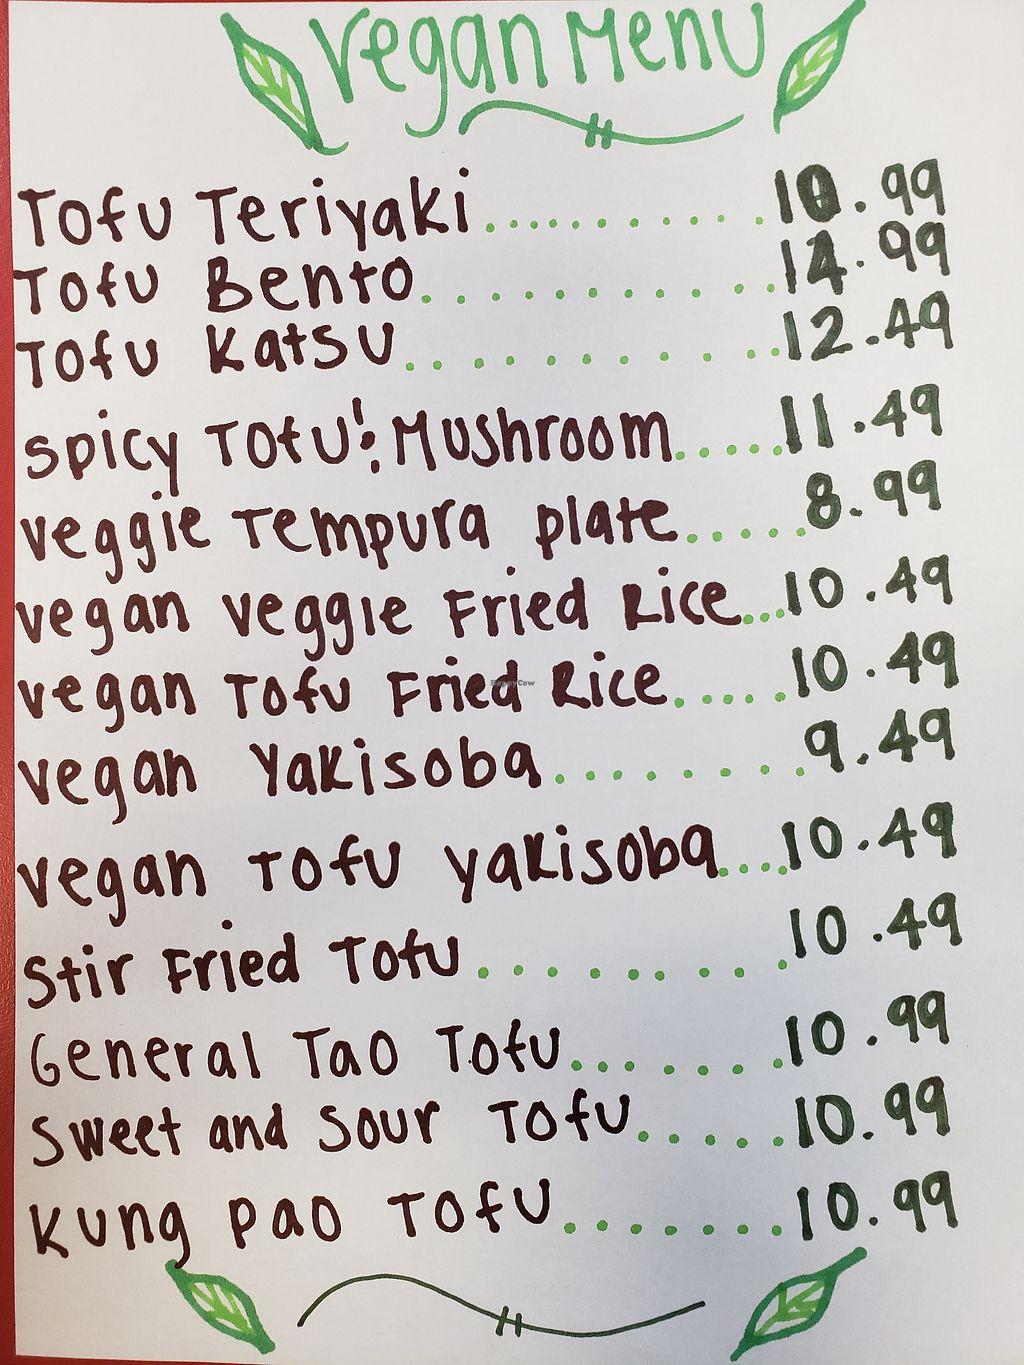 Vegan Menu
Tofu Teriyaki............10.99
Tofu Bento............14.99
Tofu Katsu..........12.49
Spicy Tofu & Mushroom.....11.49
Veggie Tempura Plate.....8.99
Vegan Veggie Fried Rice...10.49
Vegan Tofu Fried Rice.....10.49
HappyCow
Vegan Yakisoba........9.49
Vegan Tofu Yakisoba....10.49
Stir Fried Tofu.........10.49
General Tao Tofu.......10.99
Sweet and Sour Tofu.....10.99
Kung Pao Tofu.......10.99